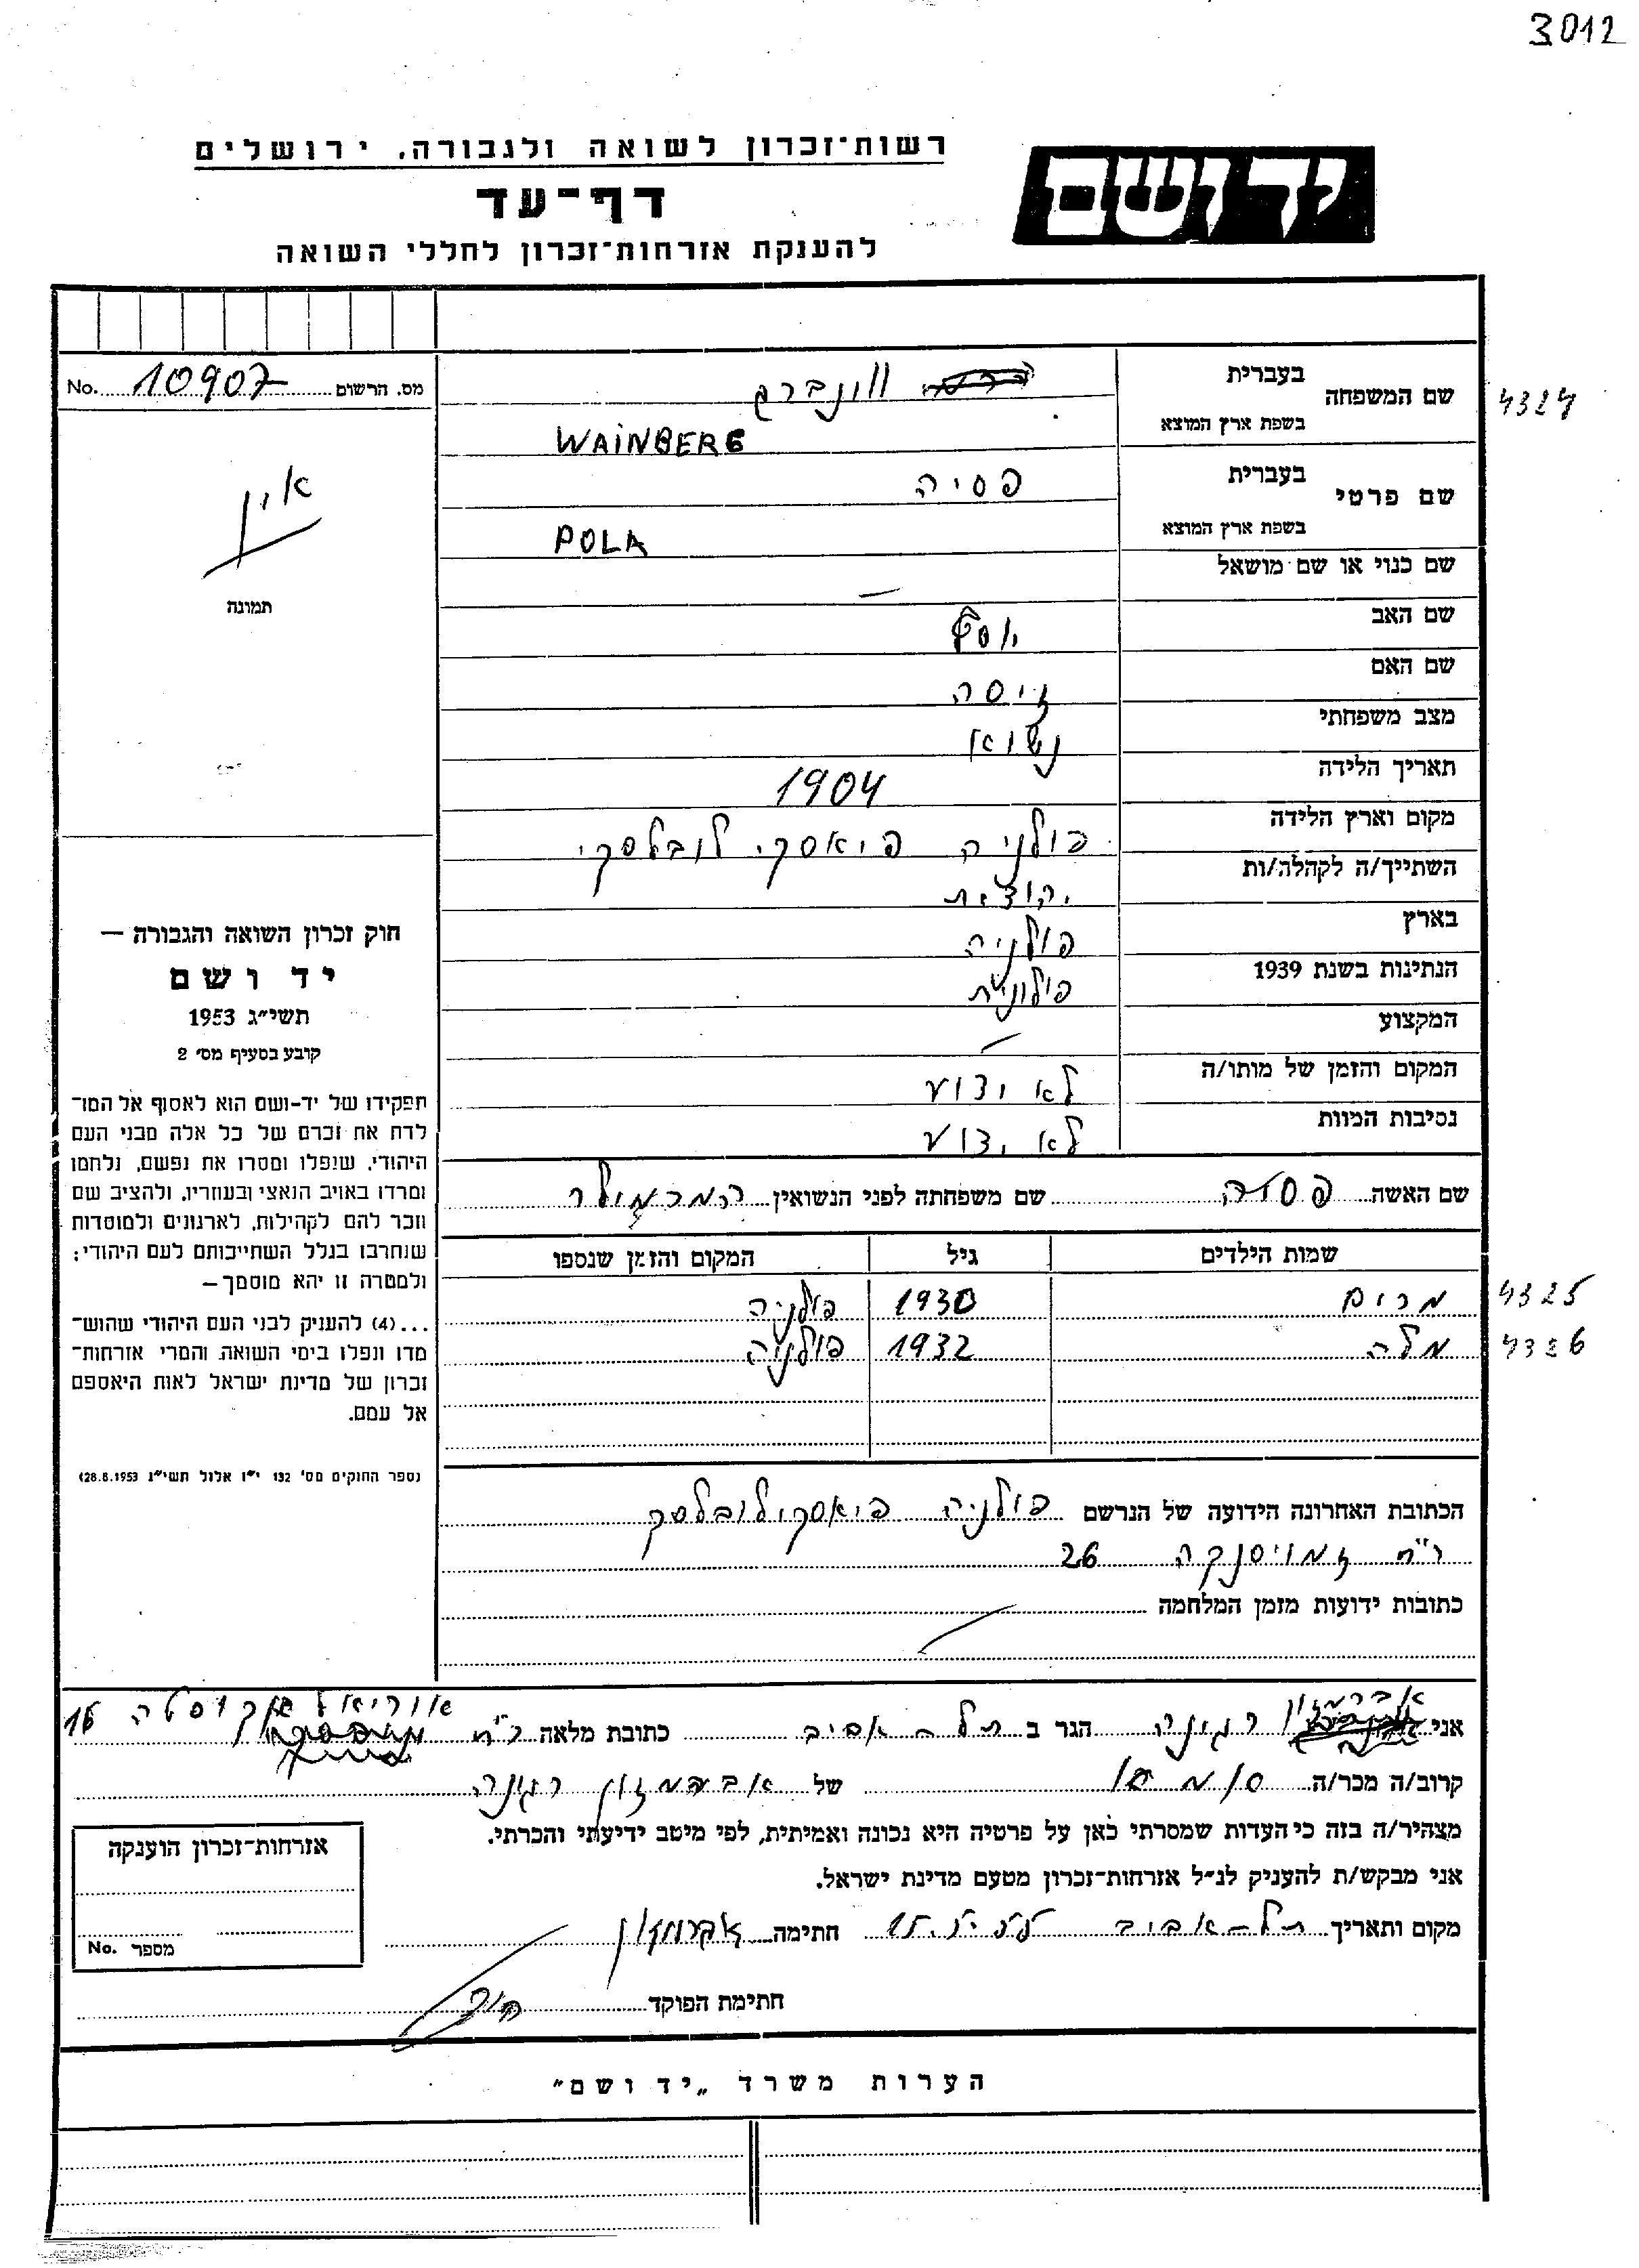 3012
רשות־זכרון לשואה ולגבורה, ירושלים
יד ושם
דף־עד
להענקת אזרחות־זכרון לחללי השואה
מס. הרשום 10907 No.
אין
תמונה
שם המשפחה בעברית וינברג
4324
בשפת ארץ המוצא WAINBERG
שם פרטי בעברית פסיה
בשפת ארץ המוצא POLA
שם כנוי או שם מושאל —
שם האב יוסף
שם האם זיסה
מצב משפחתי נשוא
תאריך הלידה 1904
מקום וארץ הלידה פולניה פיאסקי לובלסקי
השתייך/ה לקהלה/ות
בארץ פולניה
הנתינות בשנת 1939 פולונית
המקצוע —
המקום והזמן של מותו/ה לא ידוע
נסיבות המוות לא ידוע
חוק זכרון השואה והגבורה —
יד ושם
תשי״ג 1953
קובע בסעיף מס׳ 2
תפקידו של יד-ושם הוא לאסוף אל המו־
לדת את זכרם של כל אלה מבני העם
היהודי, שנפלו ומסרו את נפשם, נלחמו
ומרדו באויב הנאצי ובעוזריו, ולהציב שם
וזכר להם לקהילות, לארגונים ולמוסדות
שנחרבו בגלל השתייכותם לעם היהודי;
ולמטרה זו יהא מוסמך —
...(4) להעניק לבני העם היהודי שהוש־
מדו ונפלו בימי השואה והמרי אזרחות־
זכרון של מדינת ישראל לאות היאספם
אל עמם.
(ספר החוקים מס׳ 132 י״ז אלול תשי״ג 28.8.1953)
שם האשה פסיה שם משפחתה לפני הנשואין
שמות הילדים גיל המקום והזמן שנספו
מרים 1930 פולניה 4325
מלה 1932 פולניה 4326
הכתובת האחרונה הידועה של הנרשם פולניה פיאסקי לובלסק
ר״ח זמויסנקה 26
כתובות ידועות מזמן המלחמה
אני אברמזון רגינה הגר ב תל-אביב כתובת מלאה ר״ח אוריאל אקוסטה 16
קרוב/ה מכר/ה של אברמזון רגינה
מצהיר/ה בזה כי העדות שמסרתי כאן על פרטיה היא נכונה ואמיתית, לפי מיטב ידיעתי והכרתי.
אני מבקש/ת להעניק לנ״ל אזרחות־זכרון מטעם מדינת ישראל.
מקום ותאריך תל-אביב חתימה אברמזון
חתימת הפוקד
אזרחות־זכרון הוענקה
מספר No.
הערות משרד „יד ושם״